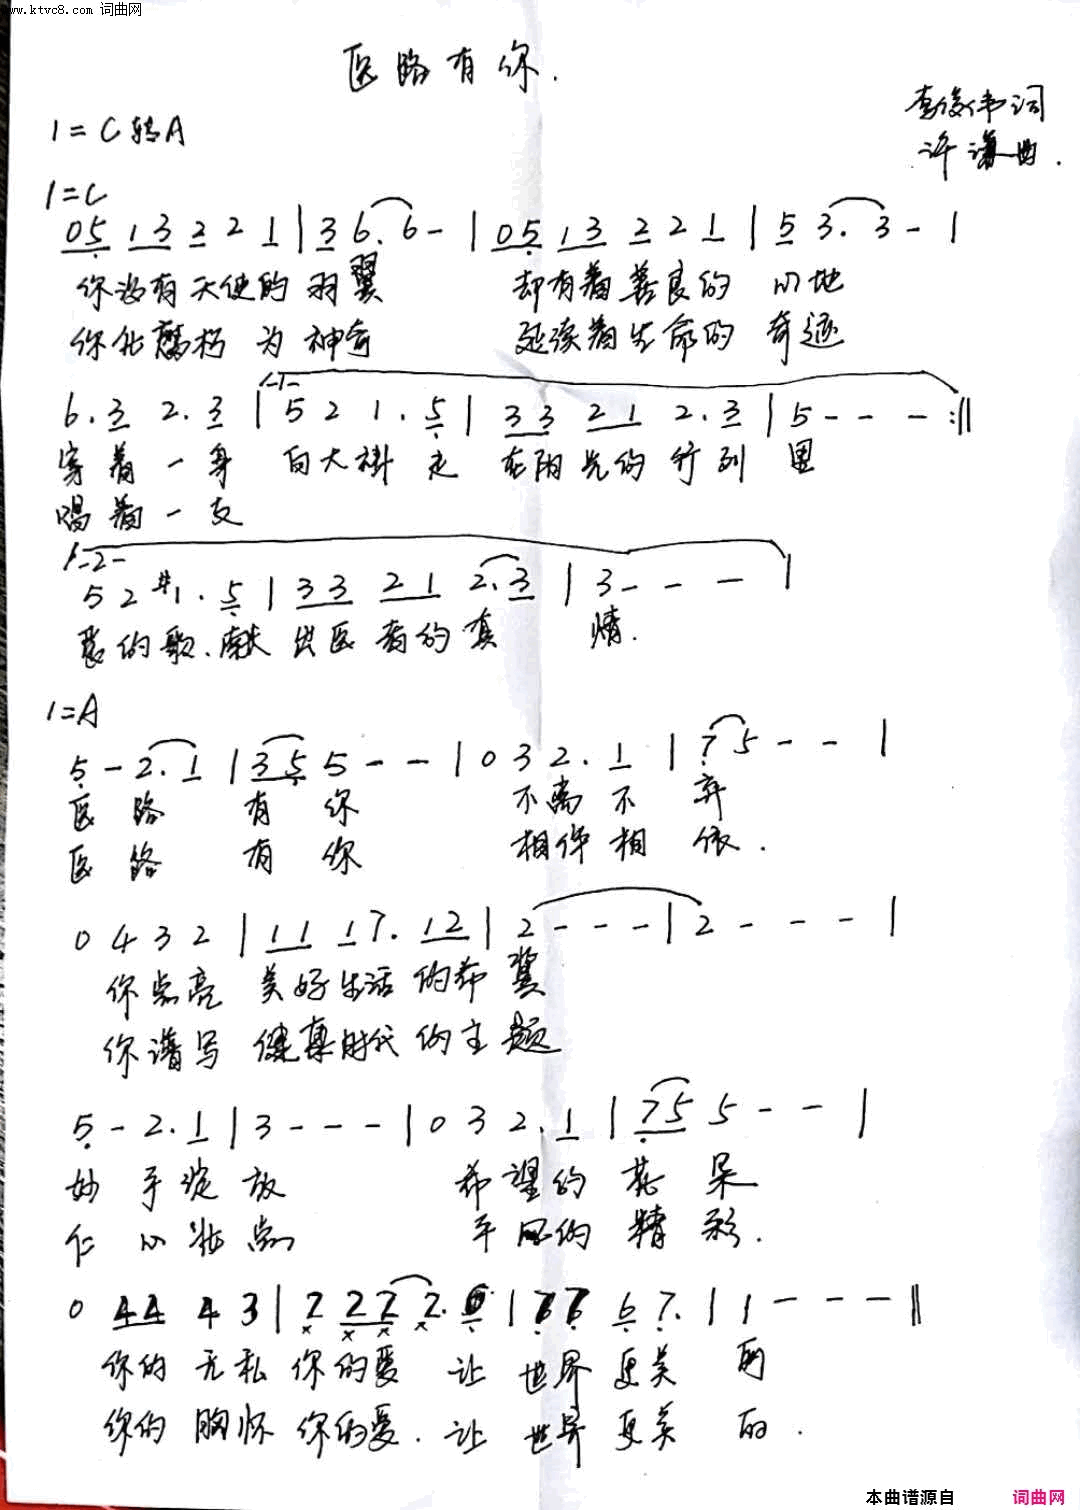 www.ktvc8.com 词曲网
医路有你.
李俊伟词
1=C转A
许谦曲.
1=C
05 13 2 2 1 | 3 6. 6 - | 05 13 2 2 1 | 5 3. 3 - |
你没有天使的羽翼 却有着善良的心地
你化腐朽为神奇 延续着生命的奇迹
-1-
6.3 2.3 | 5 2 1.5 | 33 21 2.3 | 5 - - - :||
穿着一身白大褂走在阳光的行列里
唱着一支
-2-
5 2 #1.5 | 33 21 2.3 | 3 - - - |
爱的歌.献出医者的真情.
1=A
5 - 2.1 | 35 5 - - | 0 3 2.1 | 7 5 - - |
医路有你 不离不弃
医路有你 相伴相依.
0 4 3 2 | 11 17. 12 | 2 - - - | 2 - - - |
你点亮美好生活的希冀
你谱写健康时代的主题
5 - 2.1 | 3 - - - | 0 3 2.1 | 75 5 - - |
妙手绽放 希望的花朵
仁心妆点 平凡的精彩.
0 44 4 3 | 2 222. 6 | 66 6 7. | 1 - - - ||
你的无私你的爱让世界更美丽
你的胸怀你的爱.让世界更美丽.
本曲谱源自 词曲网